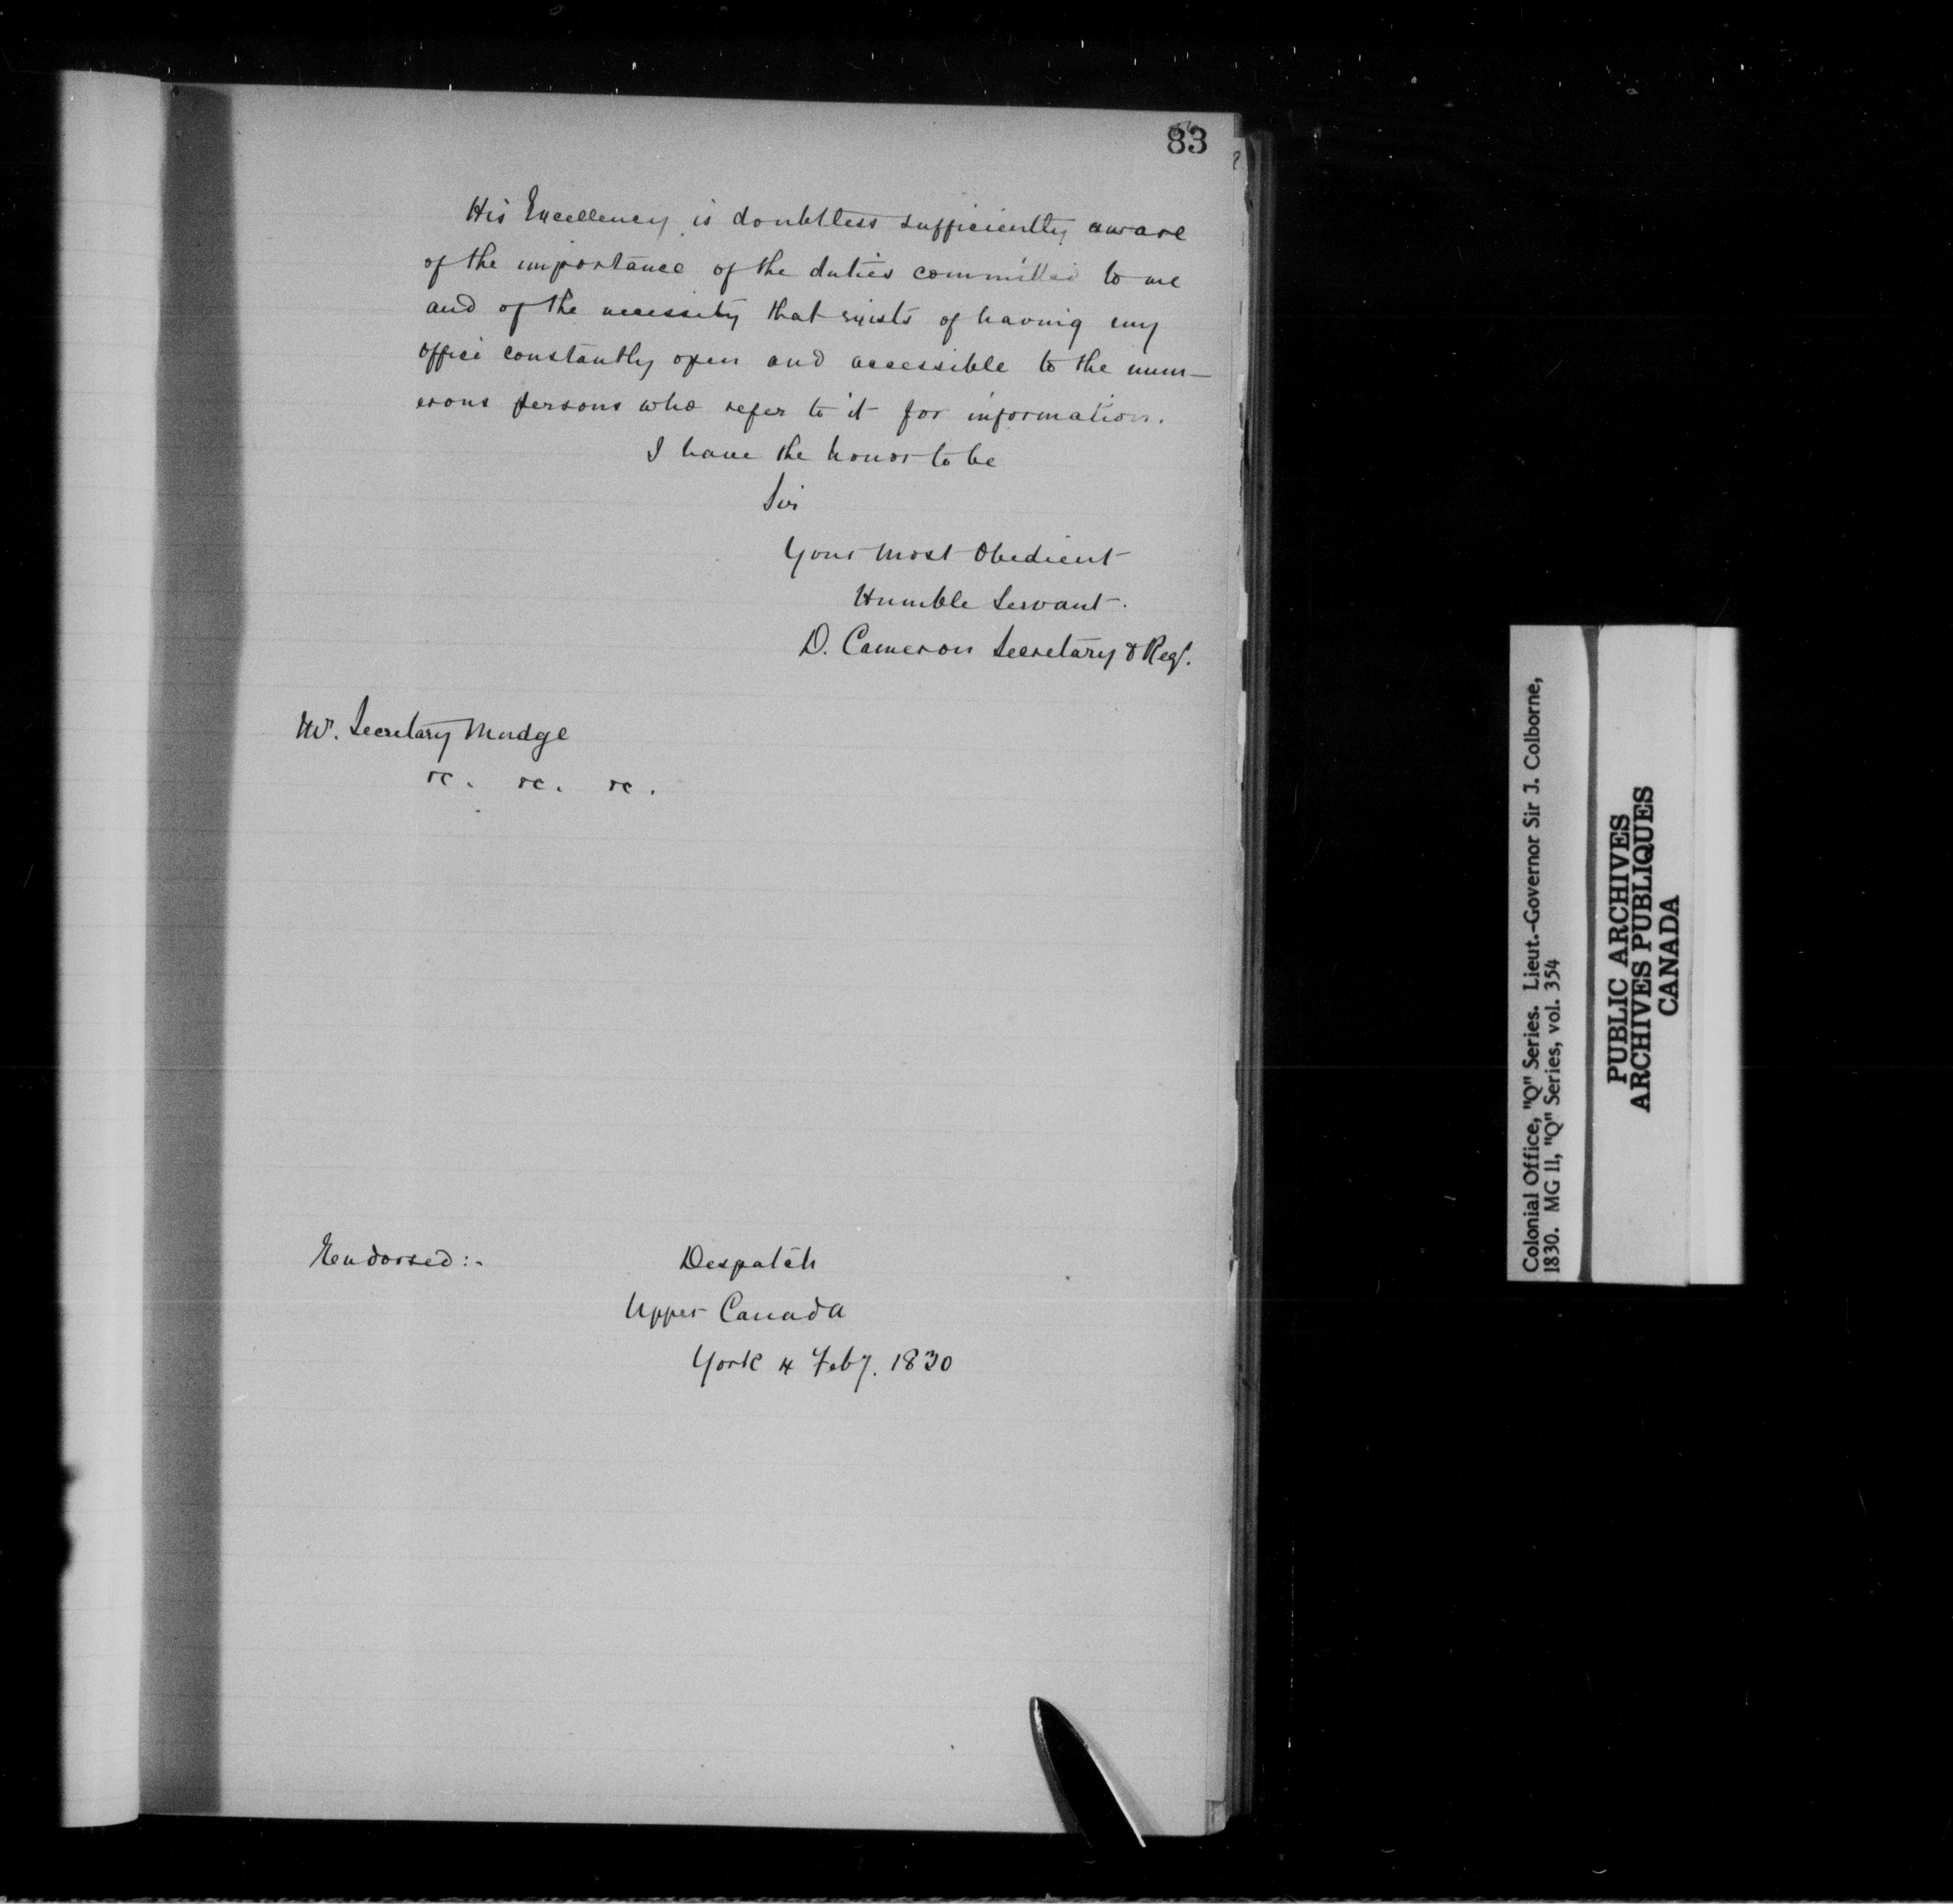 83
His Excellency is doubtless sufficiently aware
of the importance of the duties committed to me
and of the necessity that exists of having my
office constantly open and accessible to the num-
erous persons who refer to it for information.
I have the honor to be
Sir
Your most Obedient
Humble Servant.
D. Cameron Secretary & Regr.
Mr. Secretary Mudge
&c. &c. &c.
Endorsed:-
Despatch
Upper Canada
York 4 Feby. 1830
Colonial Office, "Q" Series. Lieut.-Governor Sir J. Colborne,
1830. MG 11, "Q" Series, vol. 354
PUBLIC ARCHIVES
ARCHIVES PUBLIQUES
CANADA